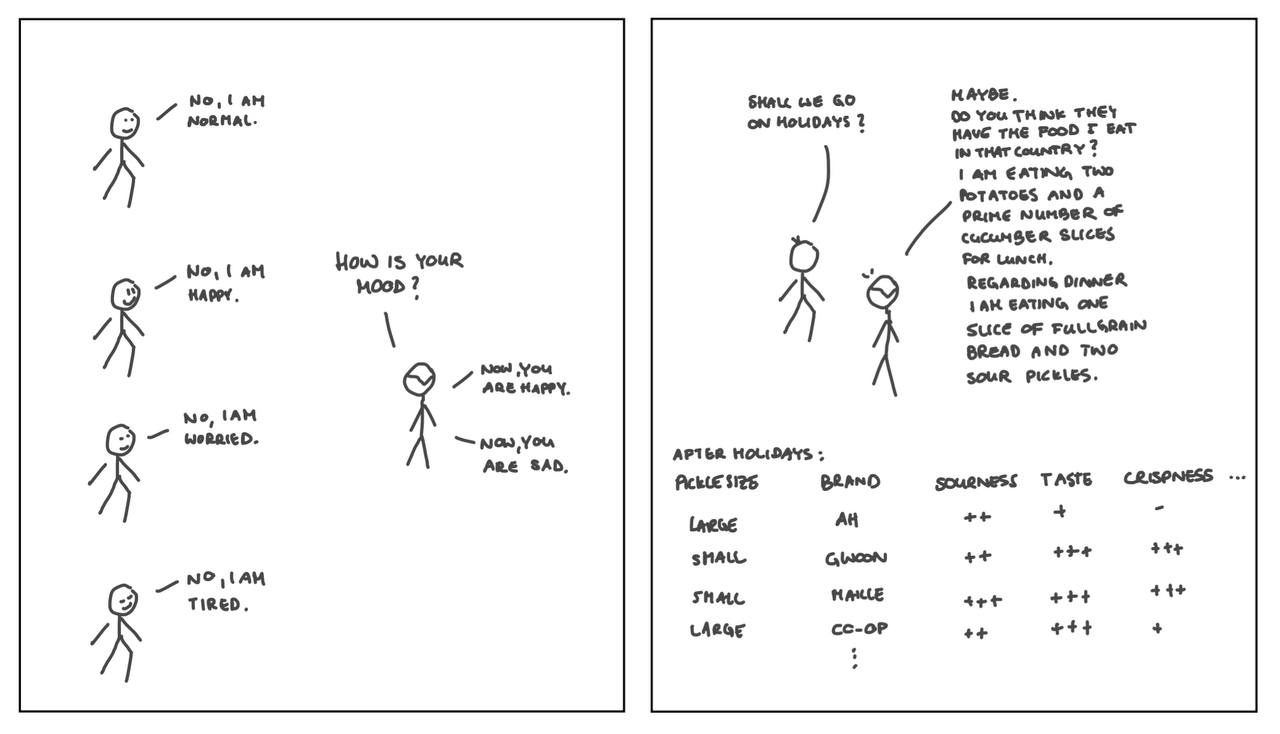 NO, I AM
NORMAL.
NO, I AM
HAPPY.
HOW IS YOUR
MOOD?
NOW, YOU
ARE HAPPY.
NO, I AM
WORRIED.
NOW, YOU
ARE SAD.
NO, I AM
TIRED.
SHALL WE GO
ON HOLIDAYS?
MAYBE.
DO YOU THINK THEY
HAVE THE FOOD I EAT
IN THAT COUNTRY?
I AM EATING TWO
POTATOES AND A
PRIME NUMBER OF
CUCUMBER SLICES
FOR LUNCH.
REGARDING DINNER
I AM EATING ONE
SLICE OF FULLGRAIN
BREAD AND TWO
SOUR PICKLES.
AFTER HOLIDAYS:
PICKLE SIZE BRAND SOURNESS TASTE CRISPNESS ...
LARGE AH ++ + -
SMALL GWOON ++ +++ +++
SMALL MAILLE +++ +++ +++
LARGE CO-OP ++ +++ +